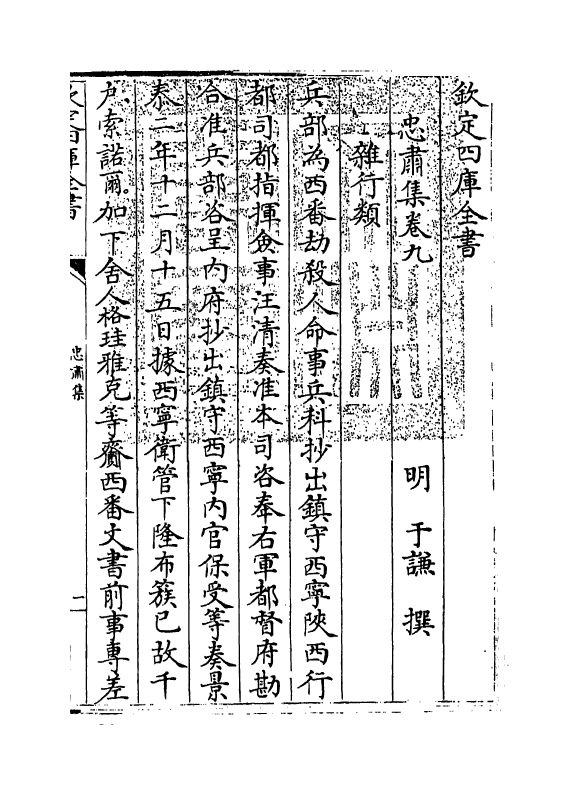 欽定四庫全書
忠肅集卷九
明 于謙 撰
雜行類
兵部為西番劫殺人命事兵科抄出鎮守西寧陝西行
都司都指揮僉事汪清奏准本司咨奉右軍都督府勘
合准兵部咨呈内府抄出鎮守西寧内官保受等奏景
泰二年十二月十五日據西寧衛管下隆布簇已故千
戶索諾爾加下舍人格珪雅克等齎西番文書前事專差
欽定四庫全書
忠肅集
二